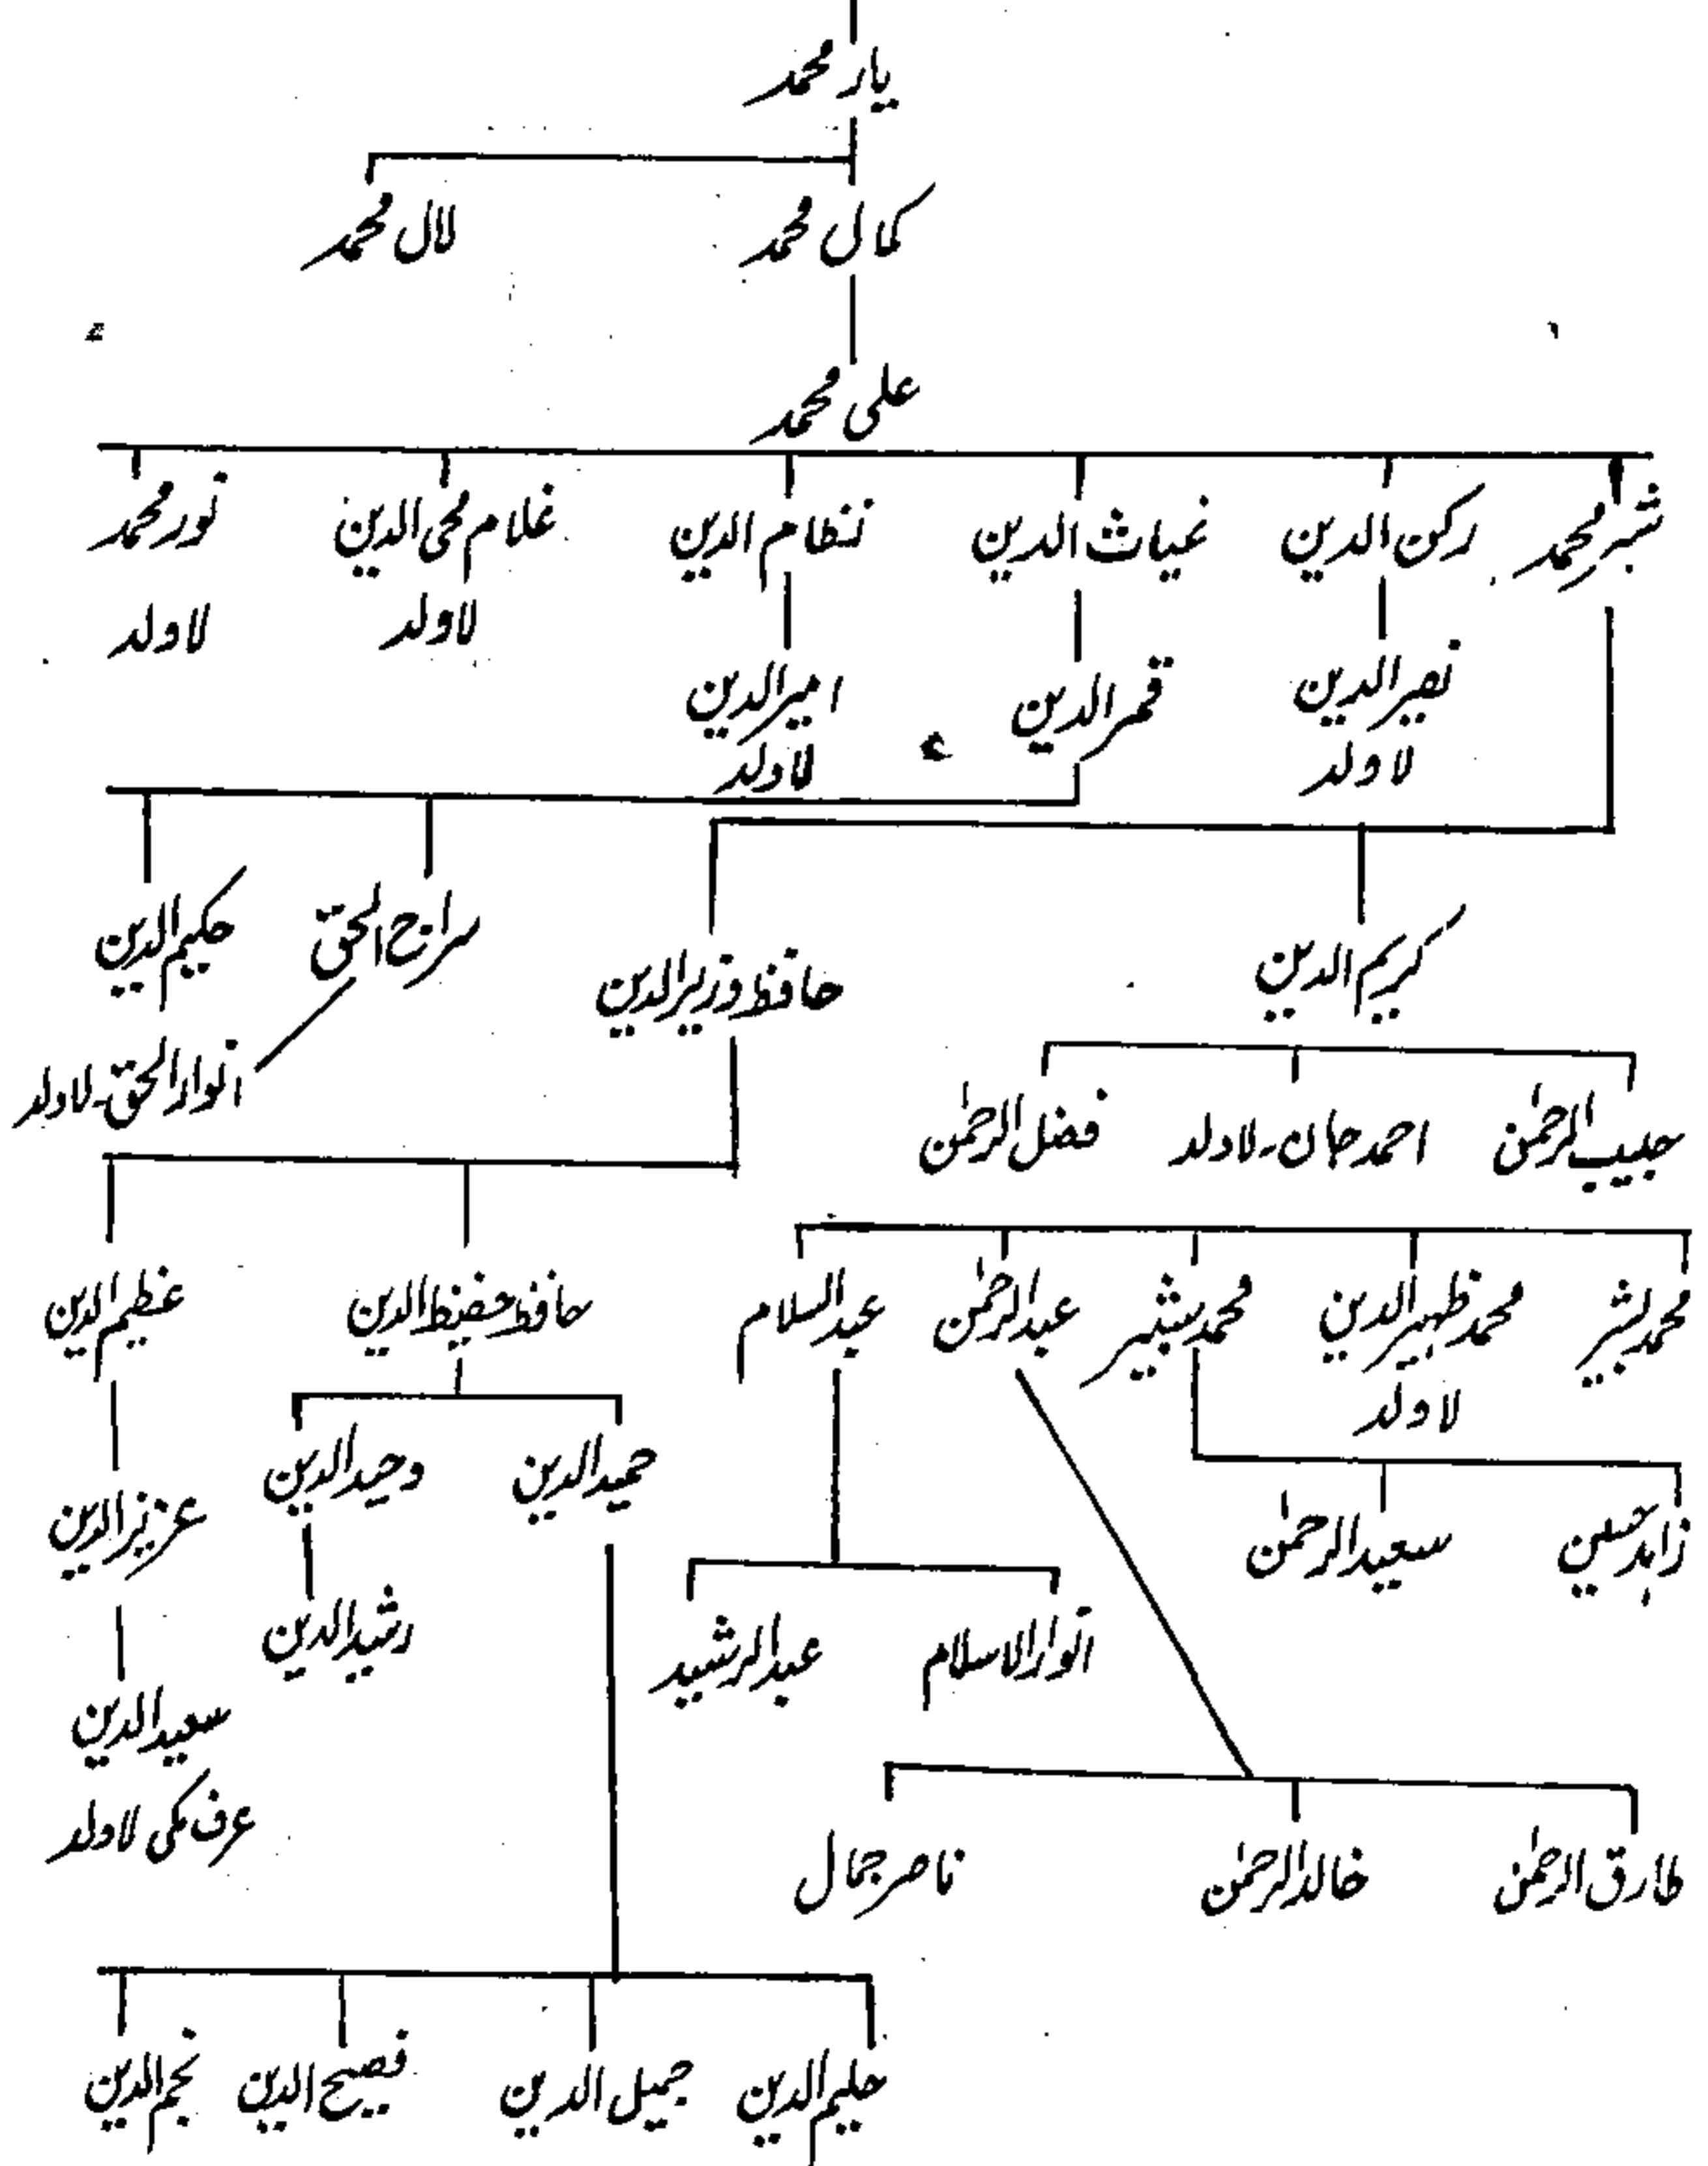 یار محمد
کمال محمد
لال محمد
علی محمد
شیر محمد
رکن الدین
غیاث الدین
نظام الدین
غلام محی الدین
نور محمد
لاولد
لاولد
نصیر الدین
لاولد
قمر الدین
امیر الدین
لاولد
کریم الدین
حافظ وزیر الدین
سراج الحق
حکیم الدین
انوار الحق۔ لاولد
حبیب الرحمٰن
احمد جان۔ لاولد
فضل الرحمٰن
محمد بشر
محمد ظہیر الدین
لاولد
محمد بشیر
عبد الرحمٰن
عبد السلام
حافظ حفیظ الدین
عظیم الدین
زاہد حسین
سعید الرحمٰن
حمید الدین
وحید الدین
عزیز الدین
انوار الاسلام
عبد الرشید
رشید الدین
سعید الدین
عرف مکی لاولد
طارق الرحمٰن
خالد الرحمٰن
ناصر جمال
حلیم الدین
جمیل الدین
فصیح الدین
نجم الدین